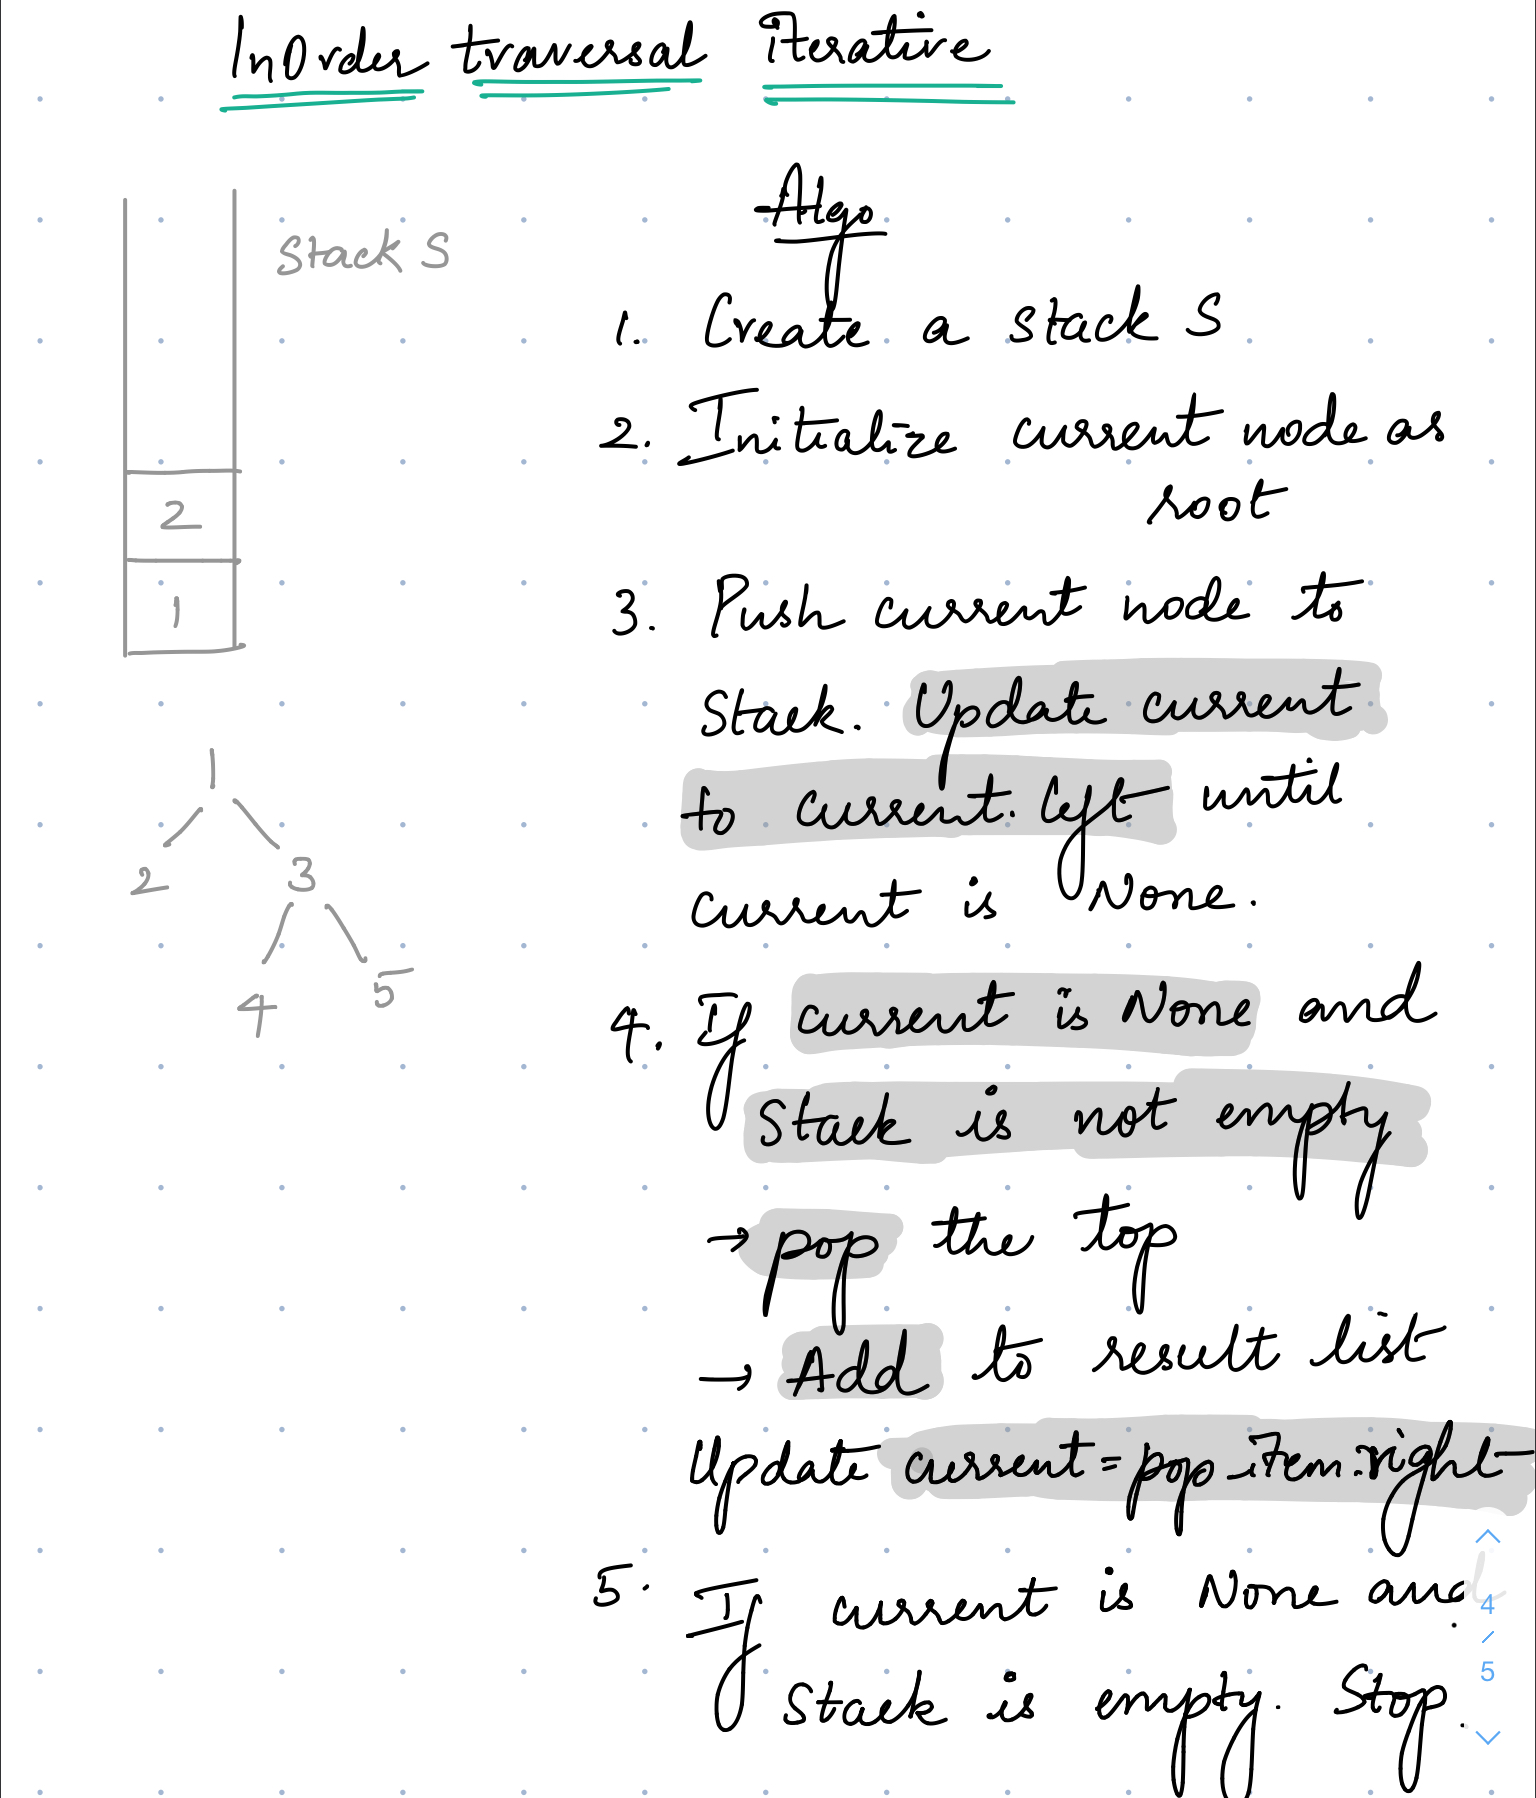 InOrder traversal iterative
Stack S
2
1
1
2 3
4 5
Algo
1. Create a stack S
2. Initialize current node as
root
3. Push current node to
Stack. Update current
to current.left until
current is None.
4. If current is None and
Stack is not empty
→ pop the top
→ Add to result list
Update current = pop-item.right
5. If current is None and
Stack is empty. Stop.
4
/
5